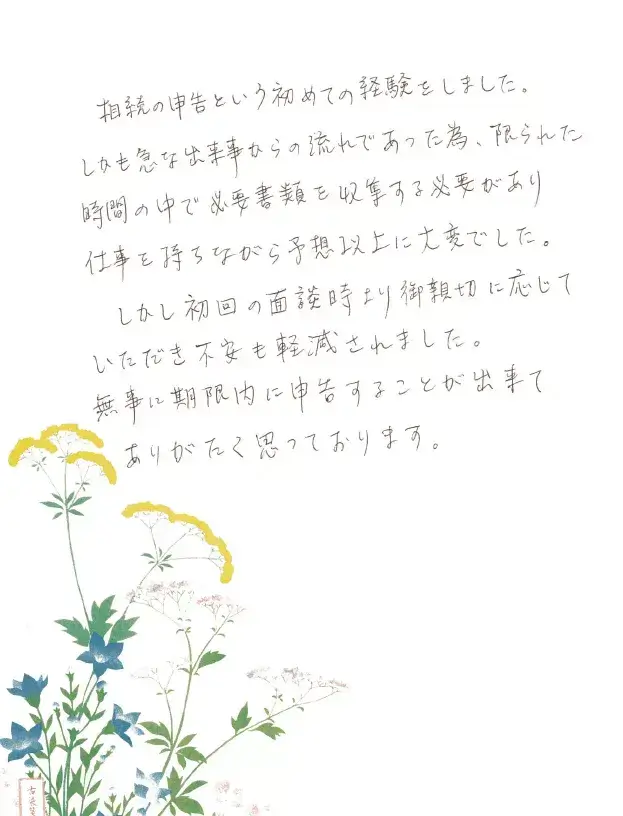 相続の申告という初めての経験をしました。
しかも急な出来事からの流れであった為、限られた
時間の中で必要書類を収集する必要があり
仕事を持ちながら予想以上に大変でした。
しかし初回の面談時より御親切に応じて
いただき不安も軽減されました。
無事に期限内に申告することが出来て
ありがたく思っております。